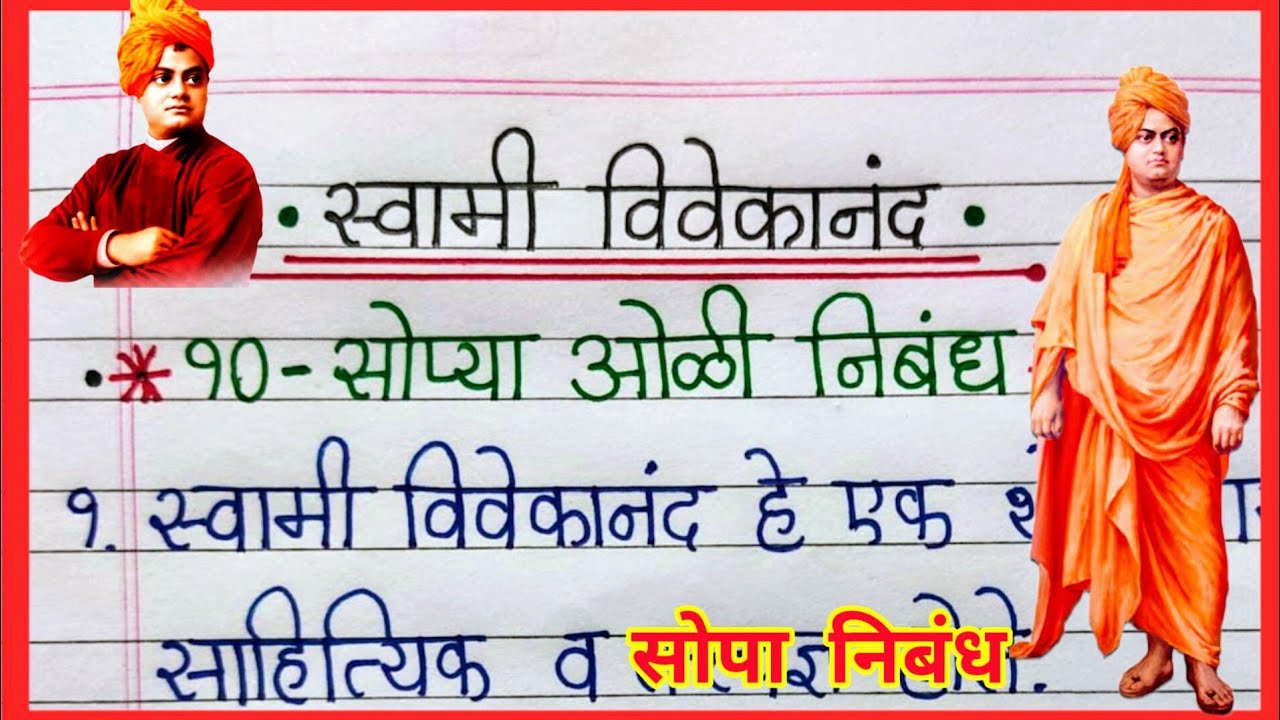 • स्वामी विवेकानंद •
* १०-सोप्या ओळी निबंध
१. स्वामी विवेकानंद हे एक
साहित्यिक व होते.
सोपा निबंध